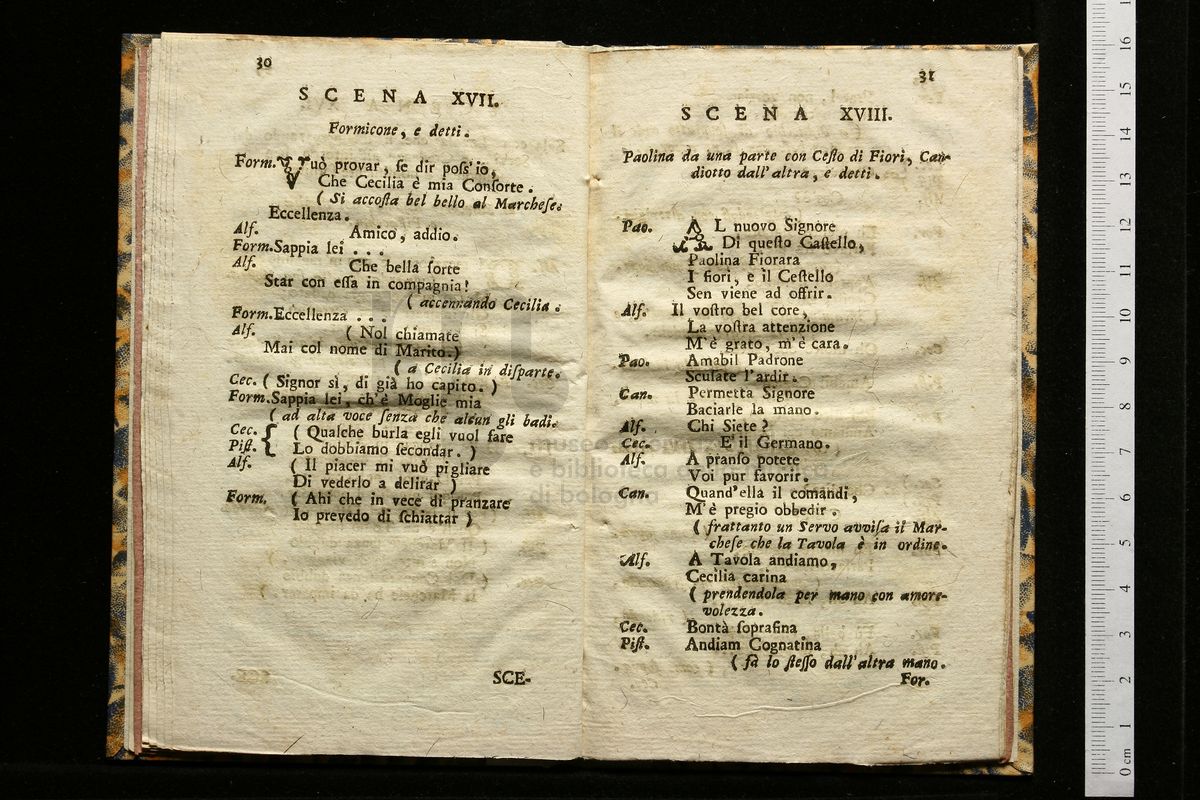 30
SCENA XVII.
Formicone, e detti.
Form. Vuò provar, se dir poss'io,
Che Cecilia è mia Consorte.
( Si accosta bel bello al Marchese.
Eccellenza.
Alf. Amico, addio.
Form. Sappia lei . . .
Alf. Che bella sorte
Star con essa in compagnia!
( accennando Cecilia .
Form. Eccellenza . . .
Alf. ( Nol chiamate
Mai col nome di Marito. )
( a Cecilia in disparte.
Cec. ( Signor sì, di già ho capito. )
Form. Sappia lei, ch'è Moglie mia
( ad alta voce senza che alcun gli badi.
Cec. { ( Qualche burla egli vuol fare
Pist. { Lo dobbiamo secondar. )
Alf. ( Il piacer mi vuò pigliare
Di vederlo a delirar )
Form. ( Ahi che in vece di pranzare
Io prevedo di schiattar )
SCE-
31
SCENA XVIII.
Paolina da una parte con Cesto di Fiori, Can-
diotto dall'altra, e detti.
Pao. AL nuovo Signore
Di questo Castello,
Paolina Fiorara
I fiori, e il Cestello
Sen viene ad offrir.
Alf. Il vostro bel core,
La vostra attenzione
M'è grato, m'è cara.
Pao. Amabil Padrone
Scusate l'ardir.
Can. Permetta Signore
Baciarle la mano.
Alf. Chi Siete?
Cec. E' il Germano.
Alf. A pranso potete
Voi pur favorir.
Can. Quand'ella il comandi,
M'è pregio obbedir.
( frattanto un Servo avvisa il Mar-
chese che la Tavola è in ordine.
Alf. A Tavola andiamo,
Cecilia carina
( prendendola per mano con amore-
volezza.
Cec. Bontà soprafina
Pist. Andiam Cognatina
( fà lo stesso dall'altra mano.
For.
museo
e biblioteca
di bologna
0 cm 1 2 3 4 5 6 7 8 9 10 11 12 13 14 15 16